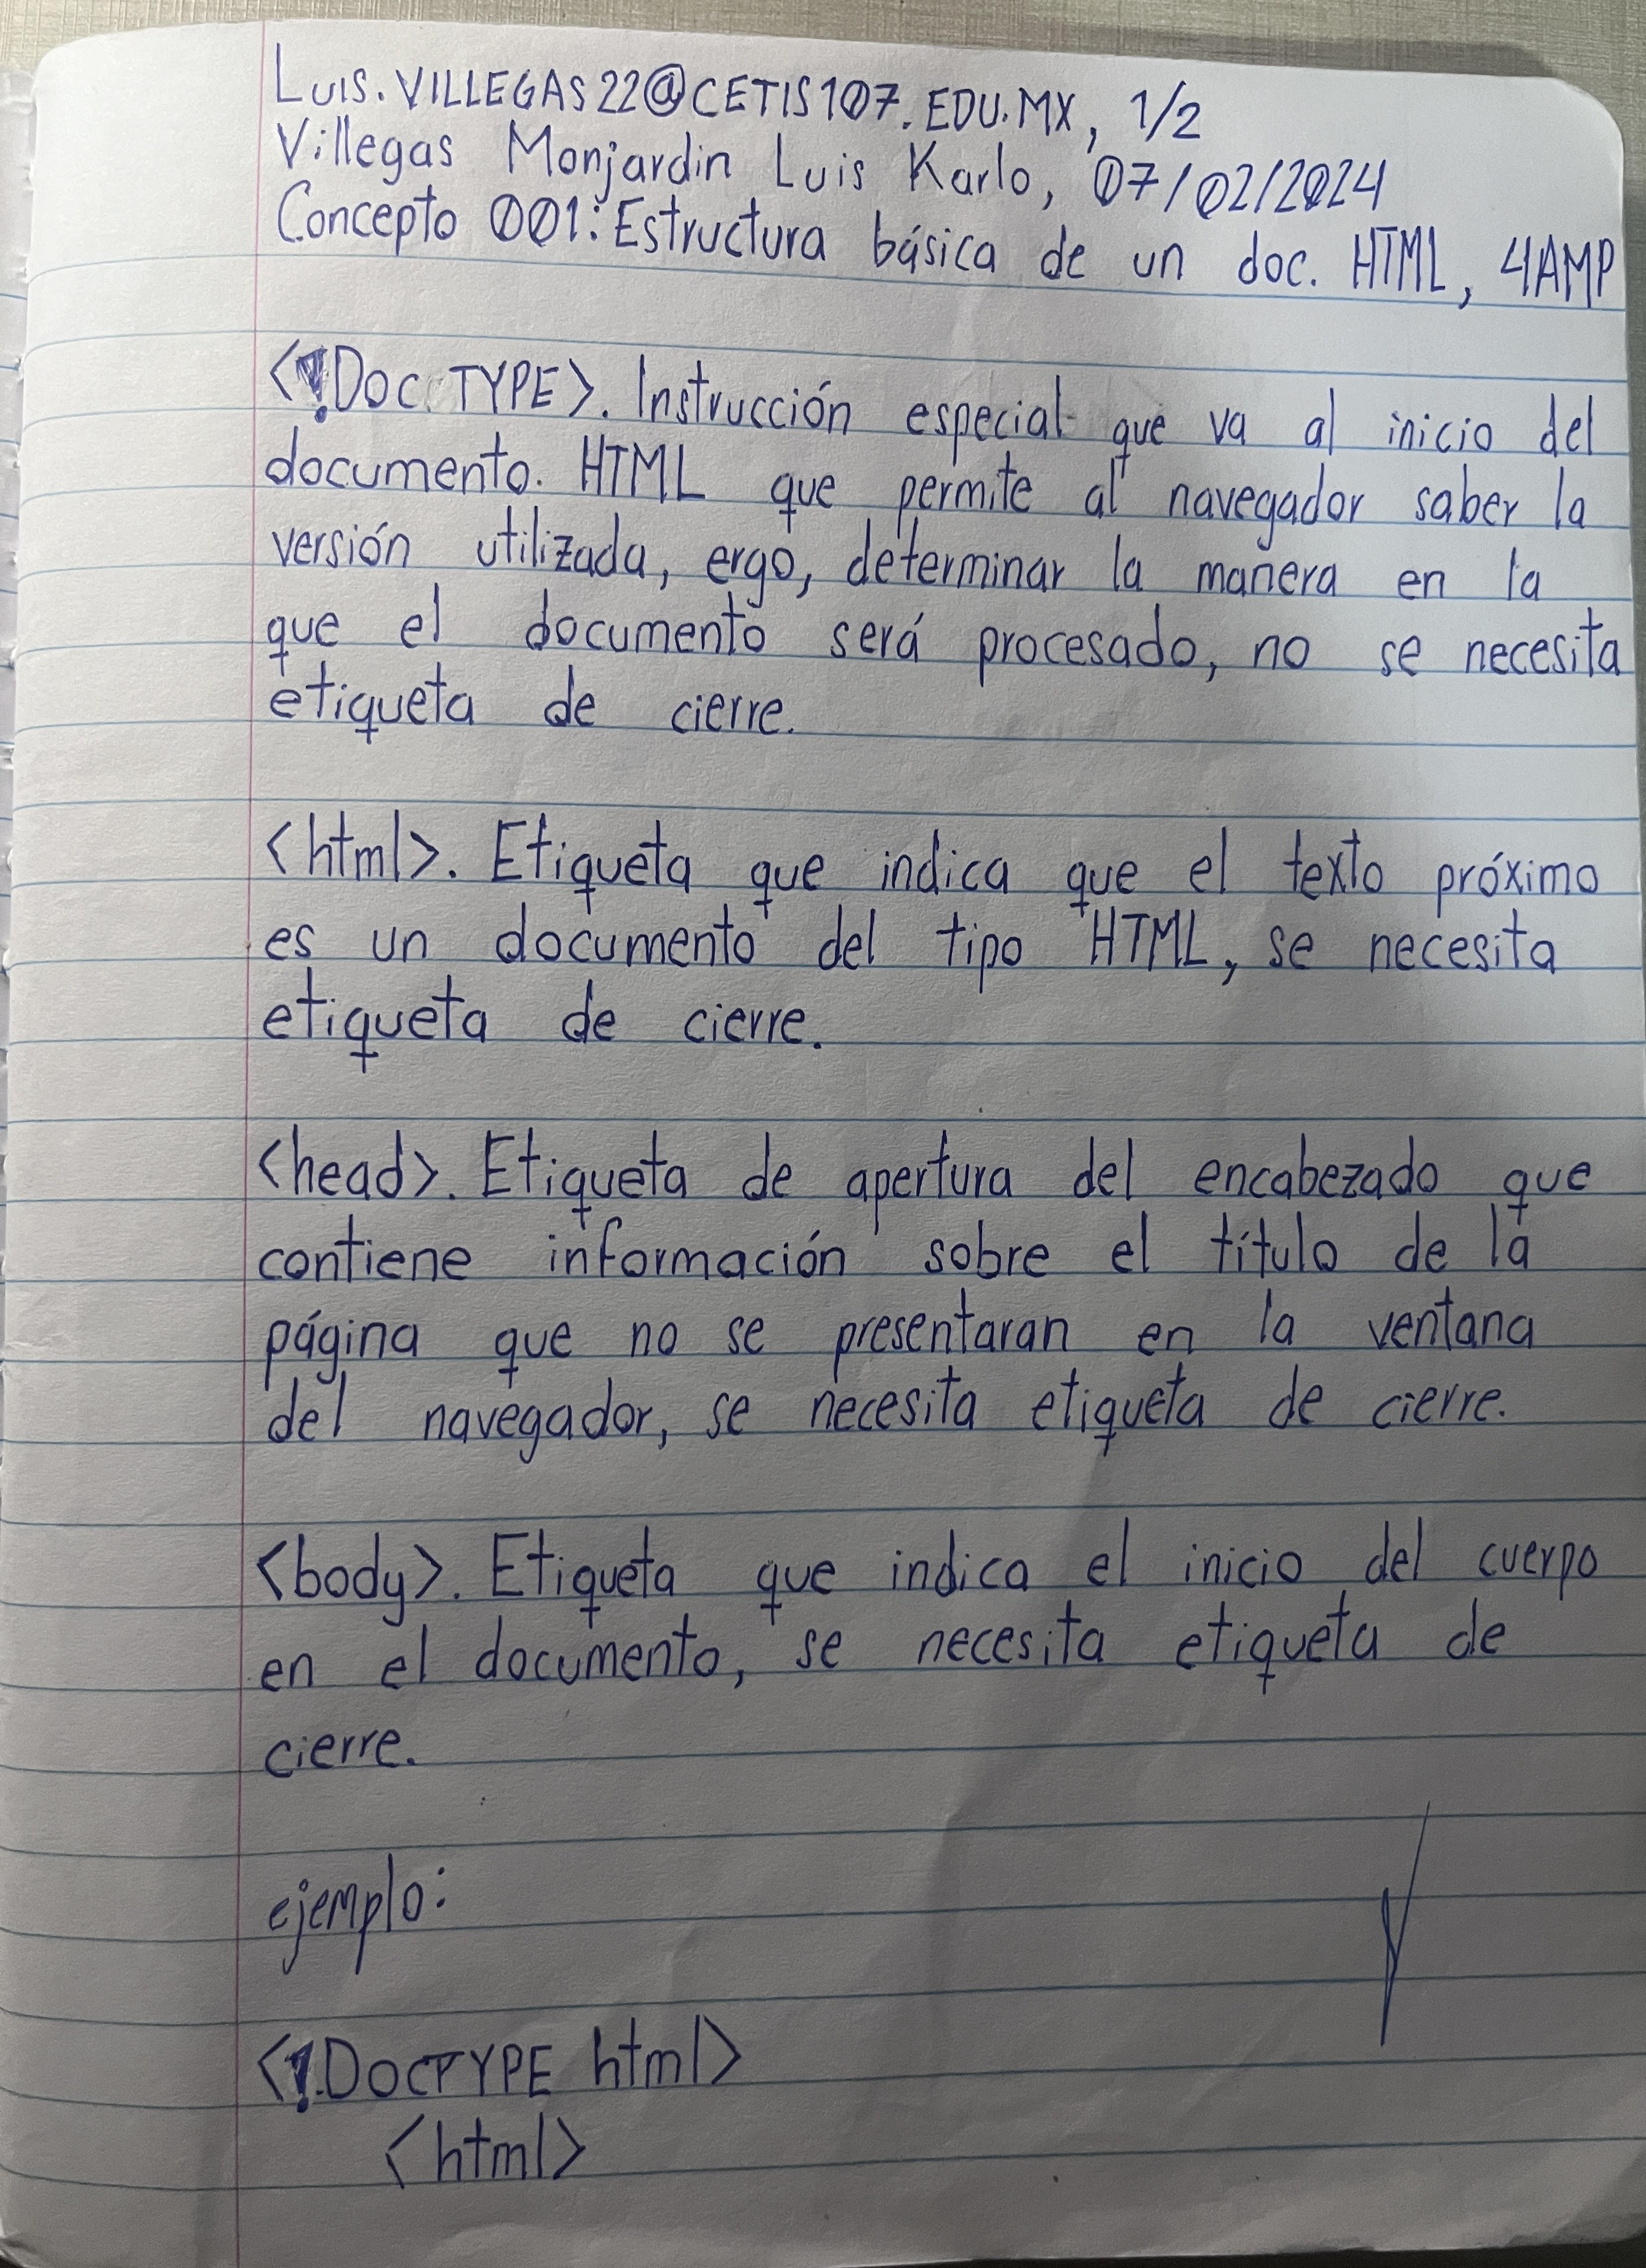 Luis.VILLEGAS22@CETIS107.EDU.MX, 1/2
Villegas Monjardin Luis Karlo, 07/02/2024
Concepto 001: Estructura básica de un doc. HTML, 4AMP
<!DocTYPE>. Instrucción especial que va al inicio del
documento. HTML que permite al navegador saber la
versión utilizada, ergo, determinar la manera en la
que el documento será procesado, no se necesita
etiqueta de cierre.
<html>. Etiqueta que indica que el texto próximo
es un documento del tipo HTML, se necesita
etiqueta de cierre.
<head>. Etiqueta de apertura del encabezado que
contiene información sobre el título de la
página que no se presentaran en la ventana
del navegador, se necesita etiqueta de cierre.
<body>. Etiqueta que indica el inicio del cuerpo
en el documento, se necesita etiqueta de
cierre.
ejemplo:
<!DOCTYPE html>
<html>